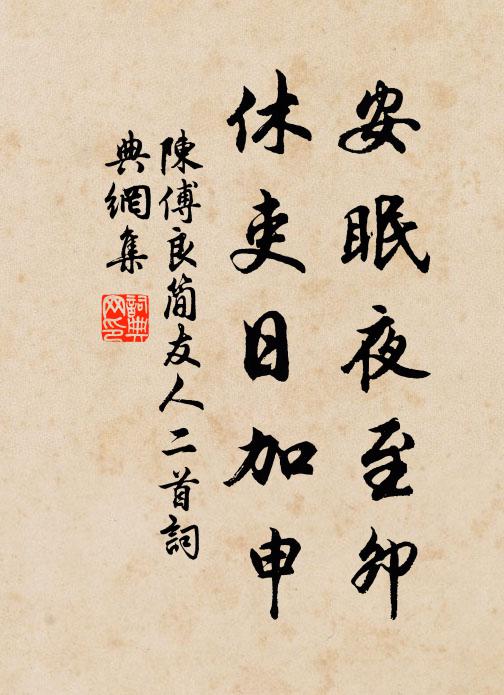 安眠夜至卯
休吏日加申
陳傅良簡友人二首詞
典網集
詞典網印